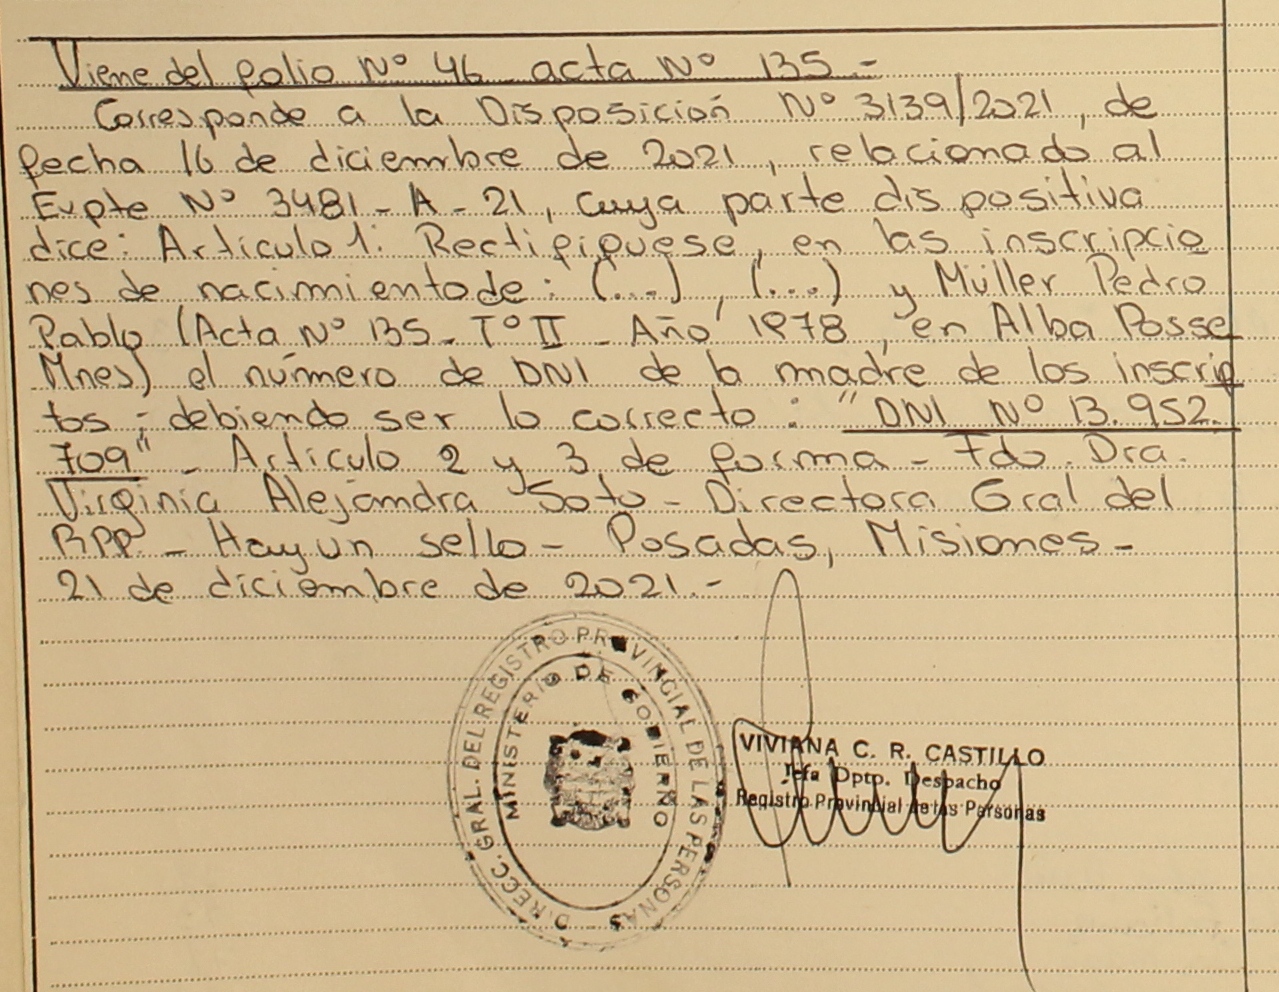 Viene del folio Nº 46 acta Nº 135.-
Corresponde a la Disposición Nº 3139/2021, de
fecha 16 de diciembre de 2021, relacionado al
Expte Nº 3481-A-21, cuya parte dispositiva
dice: Artículo 1: Rectifíquese, en las inscripcio
nes de nacimiento de: (...), (...) y Müller Pedro
Pablo (Acta Nº 135-Tº II - Año 1978, en Alba Posse
Mnes) el número de DNI de la madre de los inscrip
tos; debiendo ser lo correcto: "DNI Nº 13.952.
709" - Artículo 2 y 3 de forma - Fdo. Dra.
Virginia Alejandra Soto - Directora Gral del
RPP - Hay un sello - Posadas, Misiones -
21 de diciembre de 2021.-
DIRECC. GRAL. DEL REGISTRO PROVINCIAL DE LAS PERSONAS
MINISTERIO DE GOBIERNO
VIVIANA C. R. CASTILLO
Jefa Dpto. Despacho
Registro Provincial de las Personas